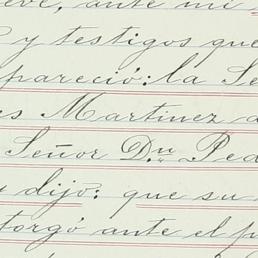 eve, ante mí
y testigos que
pareció: la Se
es Martinez d
Señor Dn. Ped
y dijo: que su
torgó ante el p